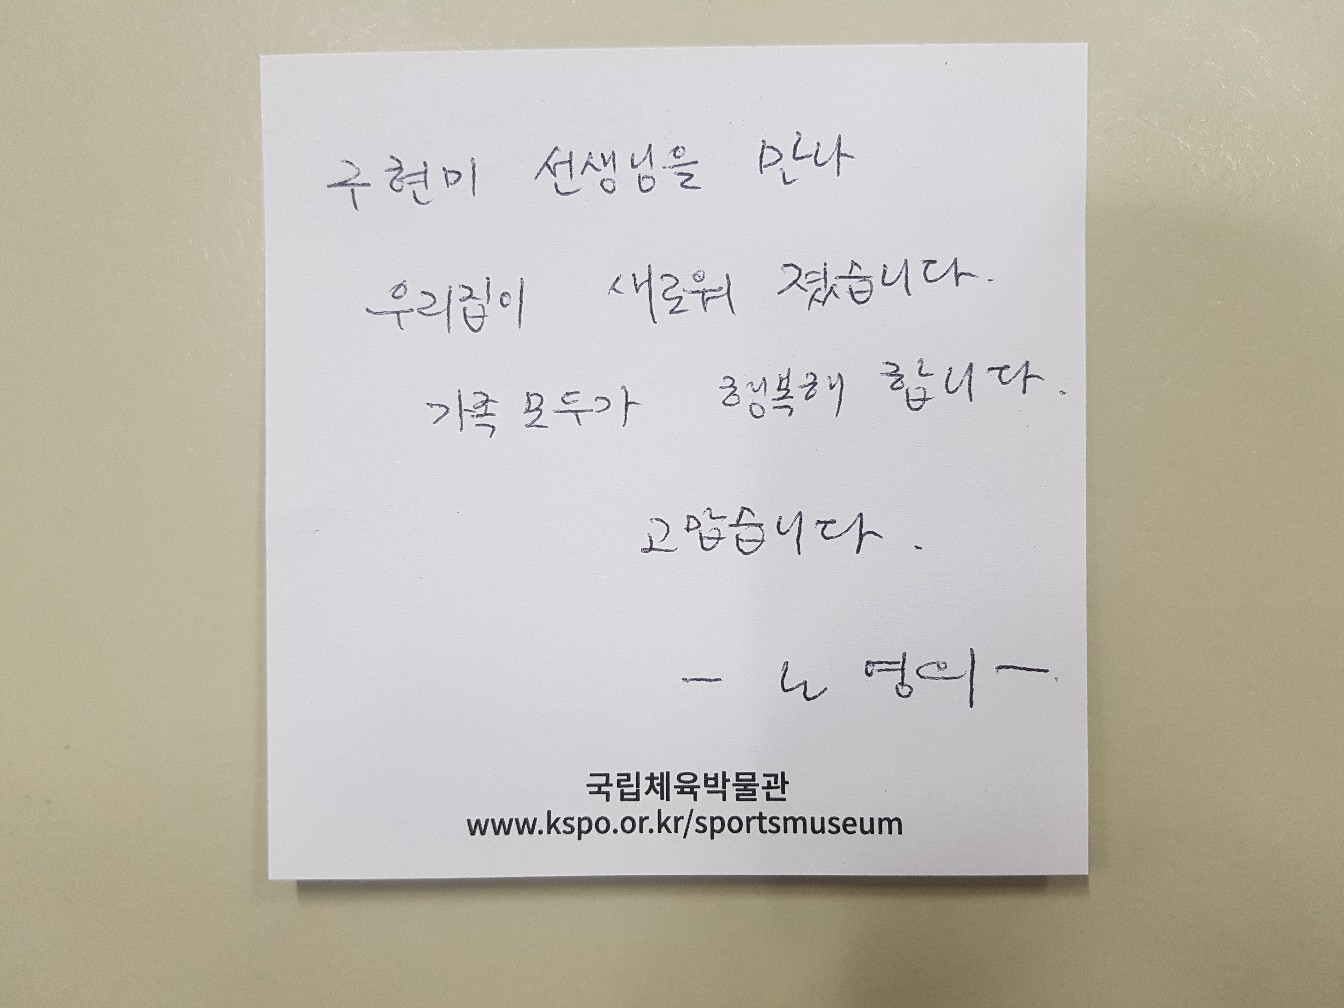 구현미 선생님을 만나
우리집이 새로워 졌습니다.
가족 모두가 행복해 합니다.
고맙습니다.
- 노영의 -
국립체육박물관
www.kspo.or.kr/sportsmuseum